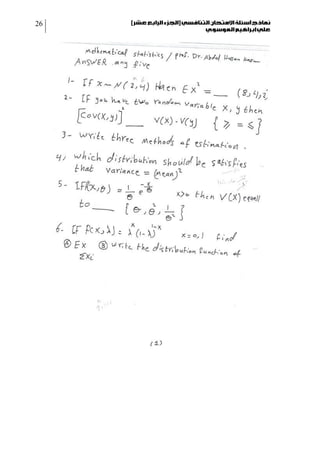 26
نماذج أسئلة الامتحان التنافسي [الجزء الرابع عشر]
علي ابراهيم الموسوي
Mathematical statistics / prof. Dr. Abdul Hasan
Answer many five
1- If x ~ N(2,4) then Ex² = __ (8,4,2)
2- If you have two random variable x, y then
[Cov(x,y)]² __ V(x).V(y) { ≥ = ≤ }
3- write three methods of estimation.
4, which distribution should be satisfies
that variance = (mean)²
5- If f(x,θ) = 1/θ e^(-x/θ) x>0 then V(x) equall
to __ [ θ, θ², 1/θ² ]
6- If P(x,λ) = λ^x (1-λ)^(1-x) x=0,1 find
Ⓐ Ex Ⓑ write the distribution function of
ΣXi
(1)